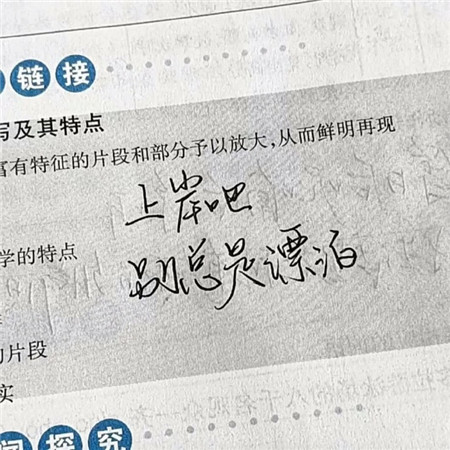 链接
写及其特点
富有特征的片段和部分予以放大,从而鲜明再现
上岸吧
学的特点
别总是漂泊
的片段
实
探究